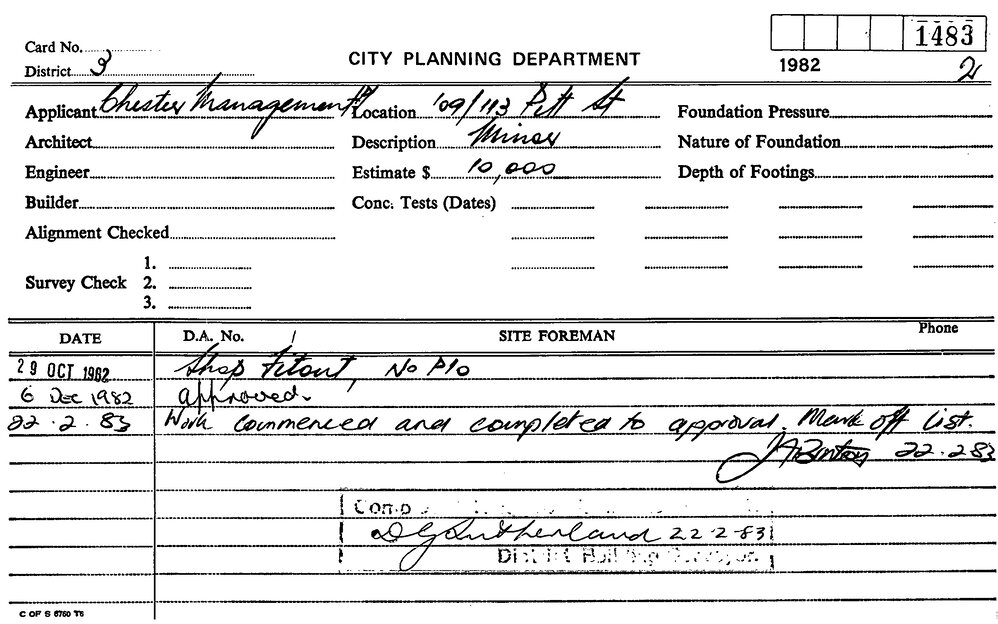 Card No.
1483
District 3
CITY PLANNING DEPARTMENT
1982
2
Applicant Chester Management Location 109/113 Pitt St Foundation Pressure
Architect Description Minor Nature of Foundation
Engineer Estimate $ 10,000 Depth of Footings
Builder Conc. Tests (Dates)
Alignment Checked
1.
Survey Check 2.
3.
DATE D.A. No. SITE FOREMAN Phone
29 OCT 1982 Shop Fitout, No P/o
6 DEC 1982 approved.
22.2.83 Work commenced and completed to approval. Mark off list.
22.2.83
Comp
D G Sutherland 22-2-83
District Building Surveyor
C OF S 6760 T6